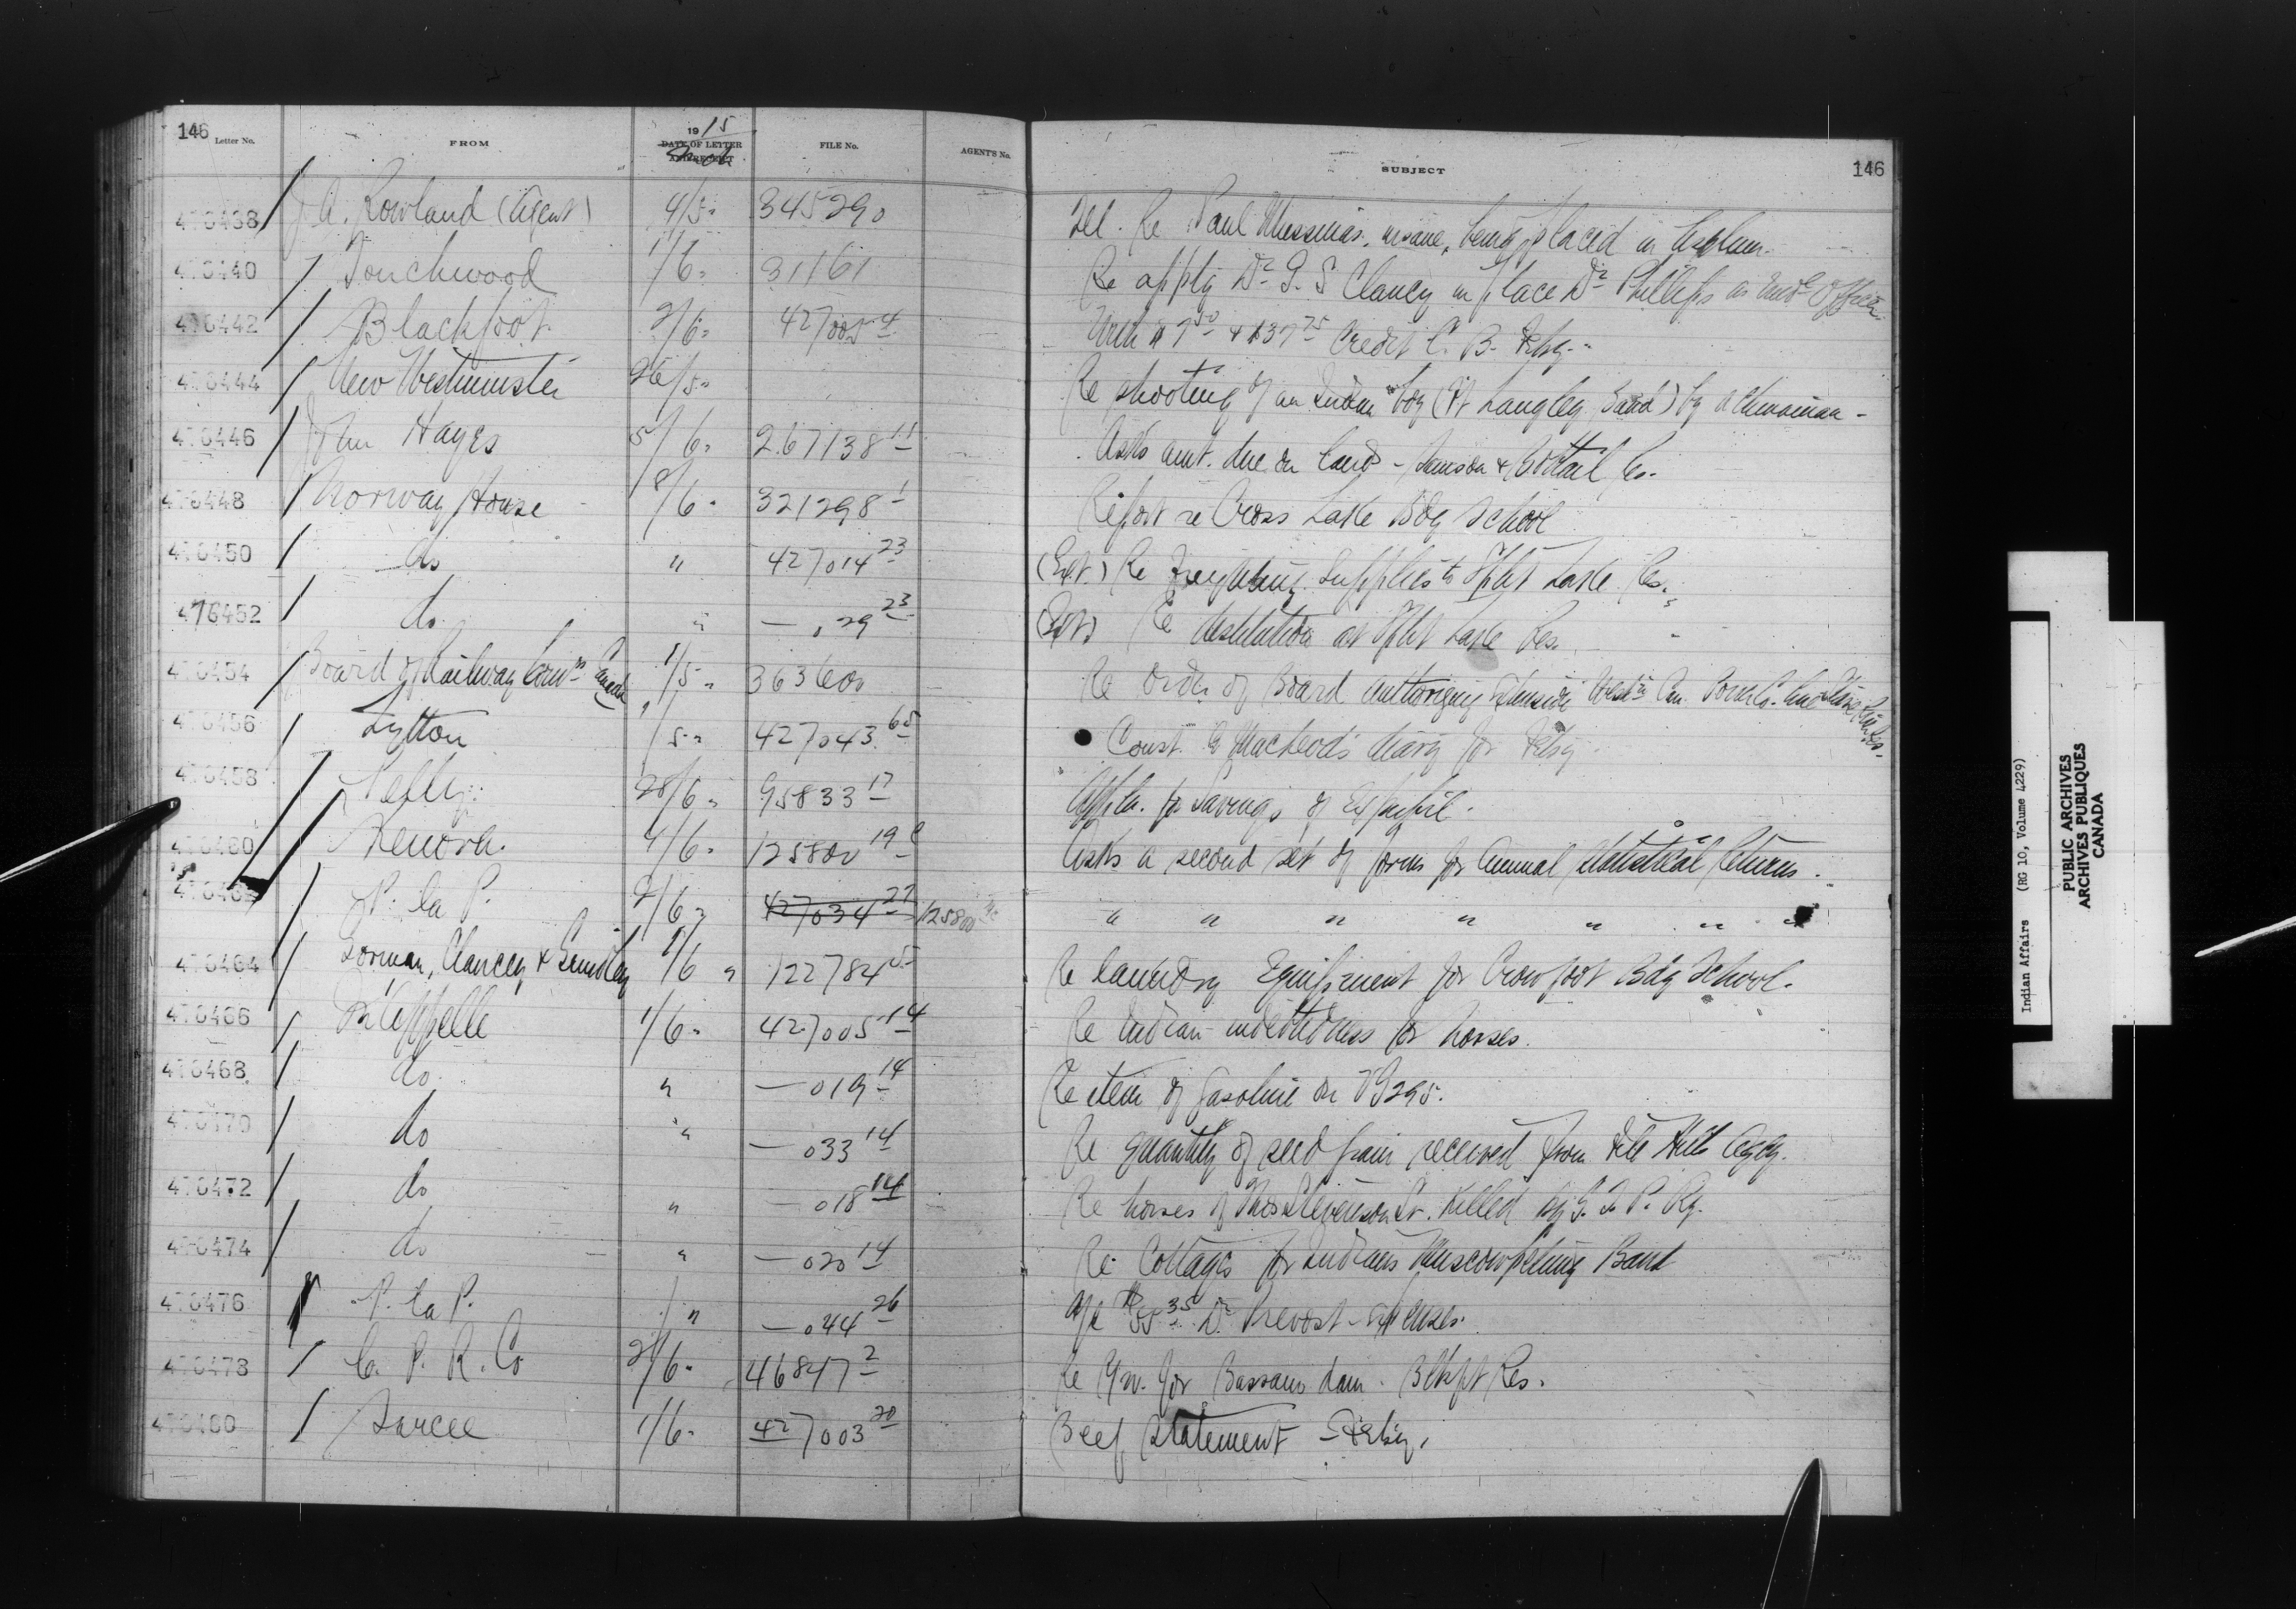 146 Letter No. FROM 1915 DATE OF LETTER FILE No. AGENT'S No. SUBJECT 146
476438 J A. Rowland (Agent) 4/5 " 345290 Tel. Re Paul insane, being placed in Asylum.
476440 Touchwood 1/6 " 31161 Re applg Dr. G. S Clancy in place Dr. Phillips as Medl Officer
476442 Blackfoot 2/6 " 427005 4 With $7 50 & $37 75 Credit C. B.
476444 New Westminster 26/5 " Re shooting of an Indian boy (Ft Langley Band) by a Chinaman -
476446 John Hayes 5/6 " 267138 11 Asks amt. due on land - Samson & Bobtail Res.
476448 Norway House 8/6 " 321298 1 Report re Cross Lake Bdg School
476450 do " 427014 23 (Ext.) Re Freighting Supplies to Split Lake Res.
476452 do " — 029 23 (Ext) Re destitution at Split Lake Res.
476454 Board of Railway Comrs Canada 1/5 " 363600 Re Order of Board authorizing Westn Can. Power Co.
476456 Lytton 1/5 " 427043 65 Const. MacLeod's diary for
476458 Pelly 28/6 " 95833 17 Appln. for Savings of Expupil.
476460 Kenora. 4/6 " 125800 19 Asks a second set of forms for Annual Statistical Returns.
47646 P. la P. 2/6 " 427034 27 125800 " " " " " " "
476464 Gorman, Clancey & Grindley 1/6 " 122784 5 Re laundry Equipment for Crowfoot Bdg School.
476466 Qu'Appelle 1/6 " 427005 14 Re Indian indebtedness for horses.
476468 do " — 019 14 Re item of Gasoline on V9295.
476470 do " — 033 14 Re quantity of seed grain received from File Hills Agcy.
476472 do " — 018 14 Re horses of Thos Stevenson Sr. Killed by G. T. P. Ry.
476474 do " — 020 14 Re Cottages for Indians Muscowpetung Band
476476 P. la P. " — 044 26 A/c $55 35 Dr. Prevost - expenses.
476478 C. P. R. Co 2/6 " 46847 2 Re R/w. for Bassano dam - Blkft Res.
476480 Sarcee 1/6 " 427003 20 Beef Statement -
Indian Affairs (RG 10, Volume 4229)
PUBLIC ARCHIVES
ARCHIVES PUBLIQUES
CANADA